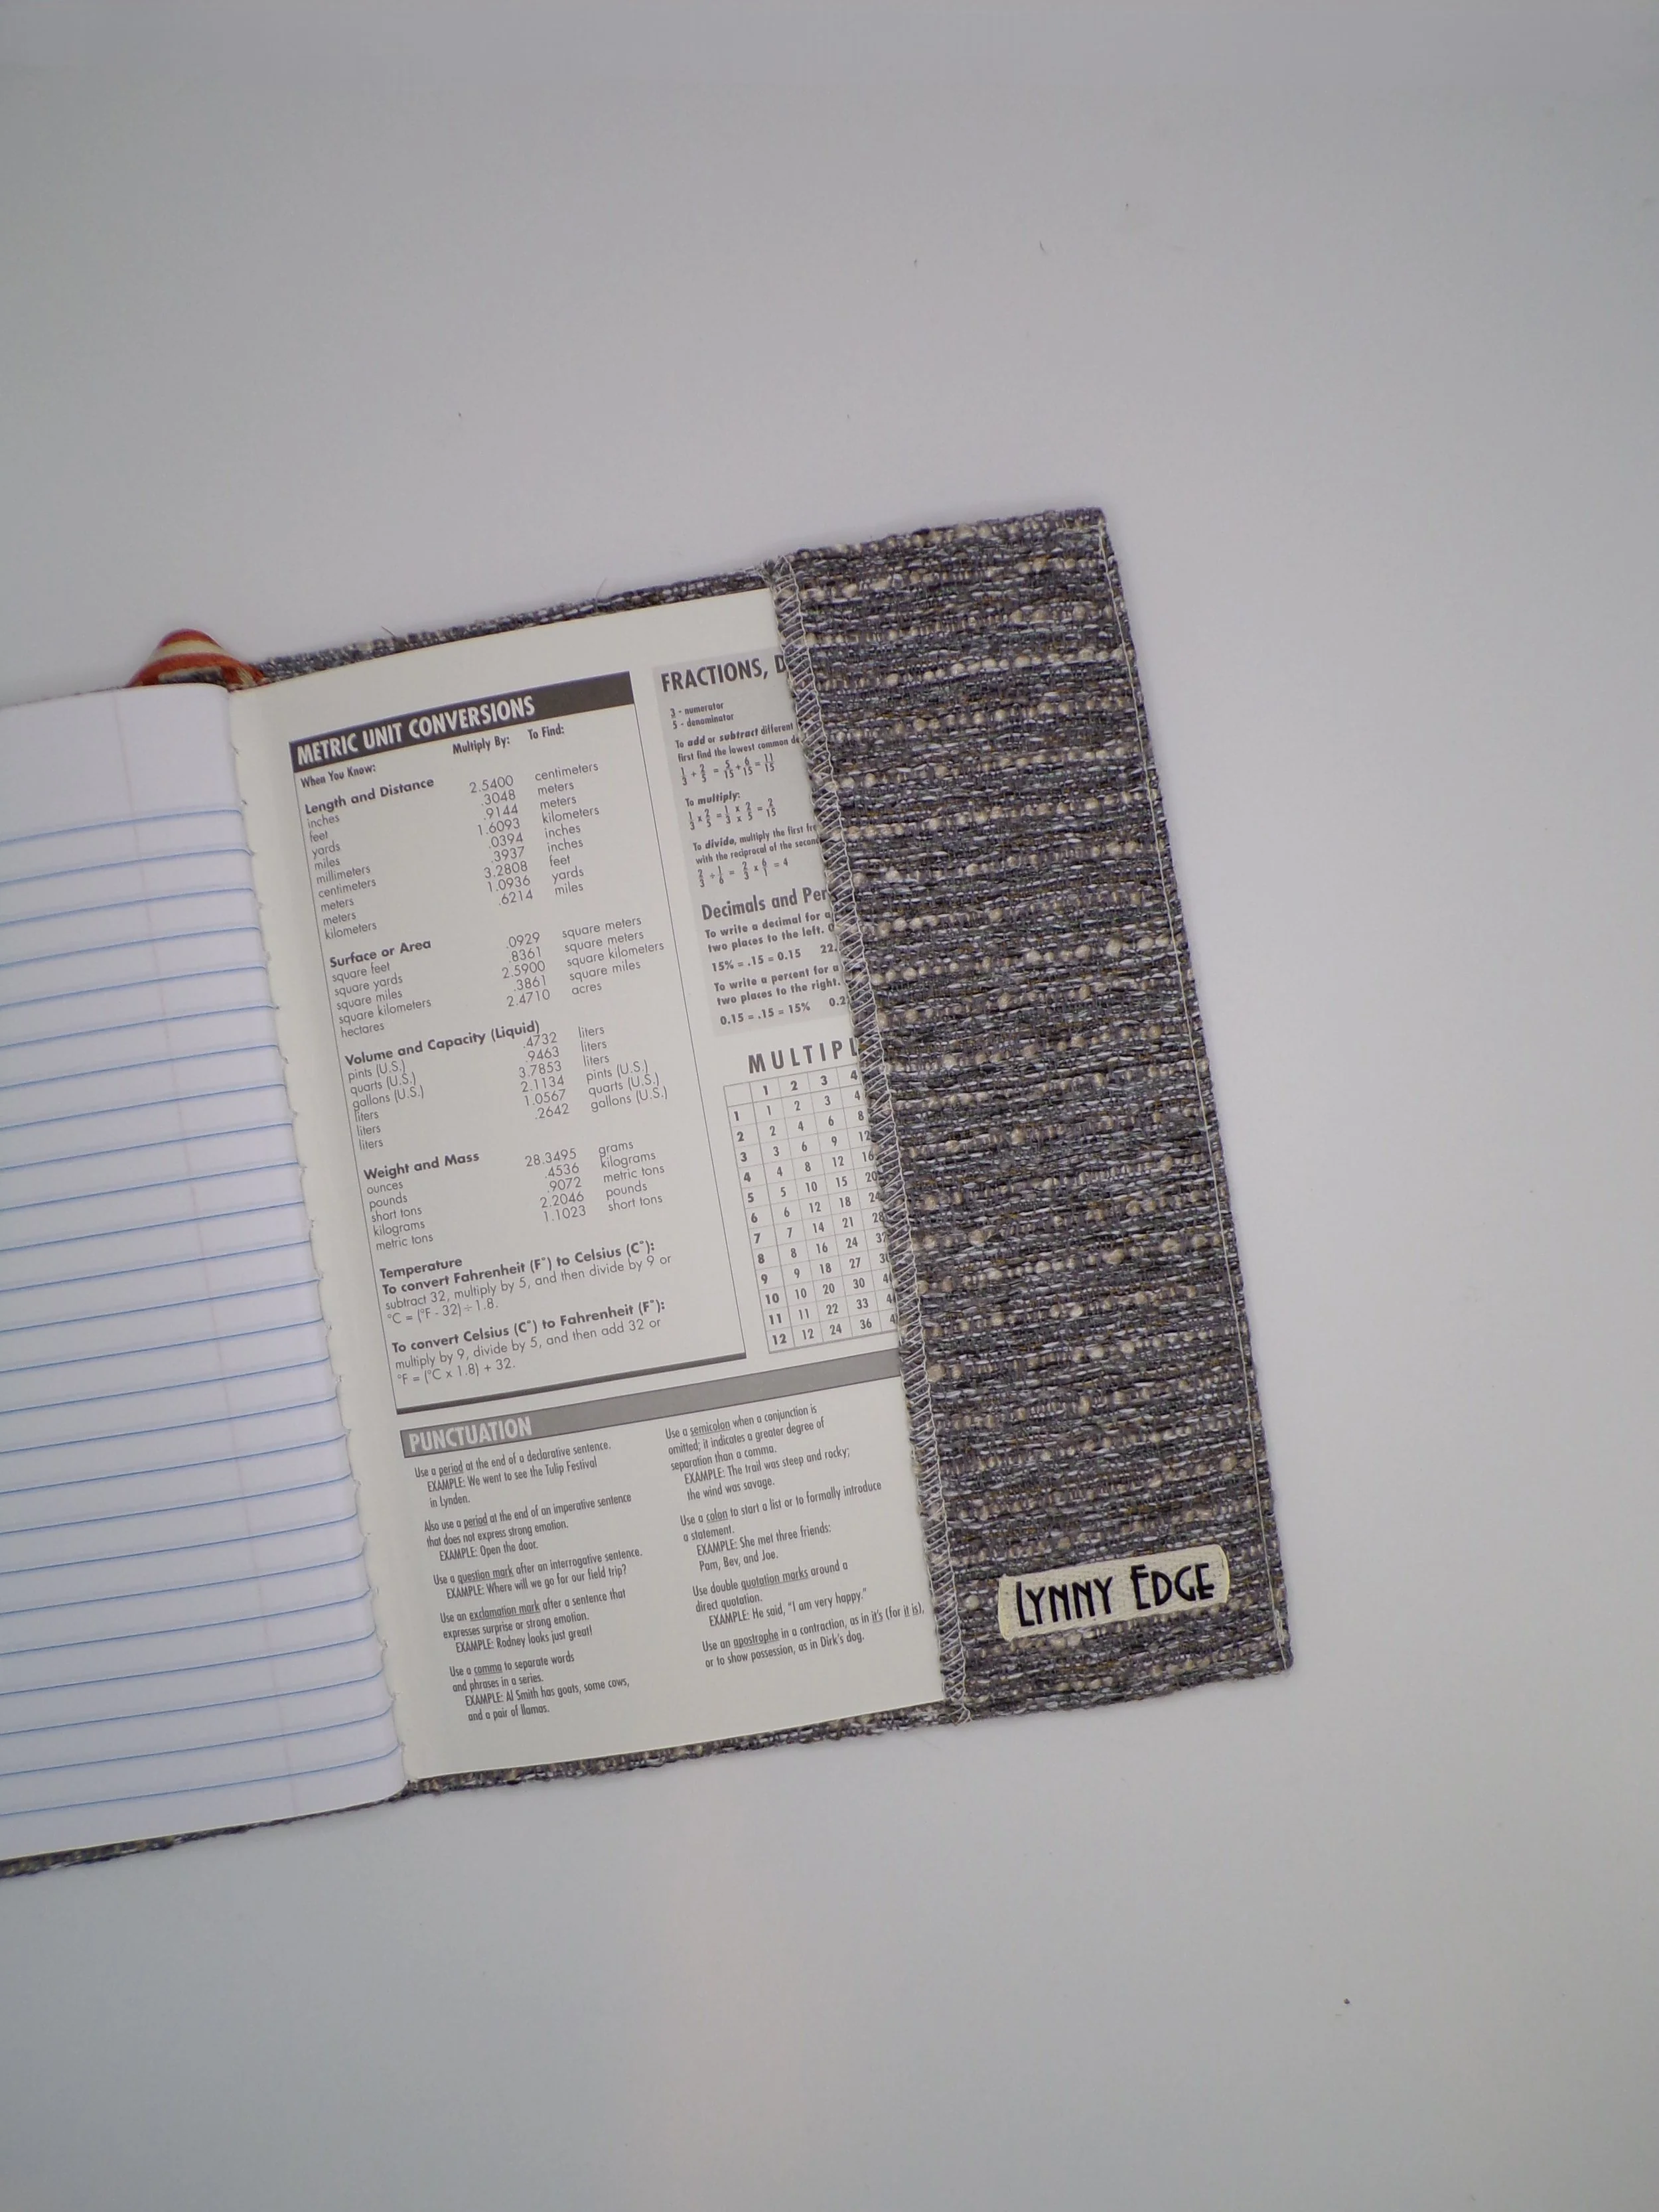 METRIC UNIT CONVERSIONS
When You Know: Multiply By: To Find:
Length and Distance
inches 2.5400 centimeters
feet .3048 meters
yards .9144 meters
miles 1.6093 kilometers
millimeters .0394 inches
centimeters .3937 inches
meters 3.2808 feet
meters 1.0936 yards
kilometers .6214 miles
Surface or Area
square feet .0929 square meters
square yards .8361 square meters
square miles 2.5900 square kilometers
square kilometers .3861 square miles
hectares 2.4710 acres
Volume and Capacity (Liquid)
pints (U.S.) .4732 liters
quarts (U.S.) .9463 liters
gallons (U.S.) 3.7853 liters
liters 2.1134 pints (U.S.)
liters 1.0567 quarts (U.S.)
liters .2642 gallons (U.S.)
Weight and Mass
ounces 28.3495 grams
pounds .4536 kilograms
short tons .9072 metric tons
kilograms 2.2046 pounds
metric tons 1.1023 short tons
Temperature
To convert Fahrenheit (F°) to Celsius (C°):
subtract 32, multiply by 5, and then divide by 9 or
°C = (°F - 32) ÷ 1.8.
To convert Celsius (C°) to Fahrenheit (F°):
multiply by 9, divide by 5, and then add 32 or
°F = (°C x 1.8) + 32.
FRACTIONS, D
3 - numerator
5 - denominator
To add or subtract different
first find the lowest common de
1/3 + 2/5 = 5/15 + 6/15 = 11/15
To multiply:
1/3 x 2/5 = 1/3 x 2/5 = 2/15
To divide, multiply the first fra
with the reciprocal of the second
2/3 ÷ 1/6 = 2/3 x 6/1 = 4
Decimals and Per
To write a decimal for a
two places to the left.
15% = .15 = 0.15 22.
To write a percent for a
two places to the right.
0.15 = .15 = 15% 0.2
MULTIPL
1 2 3 4
1 1 2 3 4
2 2 4 6 8
3 3 6 9 12
4 4 8 12 16
5 5 10 15 20
6 6 12 18 24
7 7 14 21 28
8 8 16 24 32
9 9 18 27 3
10 10 20 30 4
11 11 22 33 4
12 12 24 36 4
PUNCTUATION
Use a period at the end of a declarative sentence.
EXAMPLE: We went to see the Tulip Festival
in Lynden.
Also use a period at the end of an imperative sentence
that does not express strong emotion.
EXAMPLE: Open the door.
Use a question mark after an interrogative sentence.
EXAMPLE: Where will we go for our field trip?
Use an exclamation mark after a sentence that
expresses surprise or strong emotion.
EXAMPLE: Rodney looks just great!
Use a comma to separate words
and phrases in a series.
EXAMPLE: Al Smith has goats, some cows,
and a pair of llamas.
Use a semicolon when a conjunction is
omitted; it indicates a greater degree of
separation than a comma.
EXAMPLE: The trail was steep and rocky;
the wind was savage.
Use a colon to start a list or to formally introduce
a statement.
EXAMPLE: She met three friends:
Pam, Bev, and Joe.
Use double quotation marks around a
direct quotation.
EXAMPLE: He said, "I am very happy."
Use an apostrophe in a contraction, as in it's (for it is),
or to show possession, as in Dirk's dog.
LYNNY EDGE